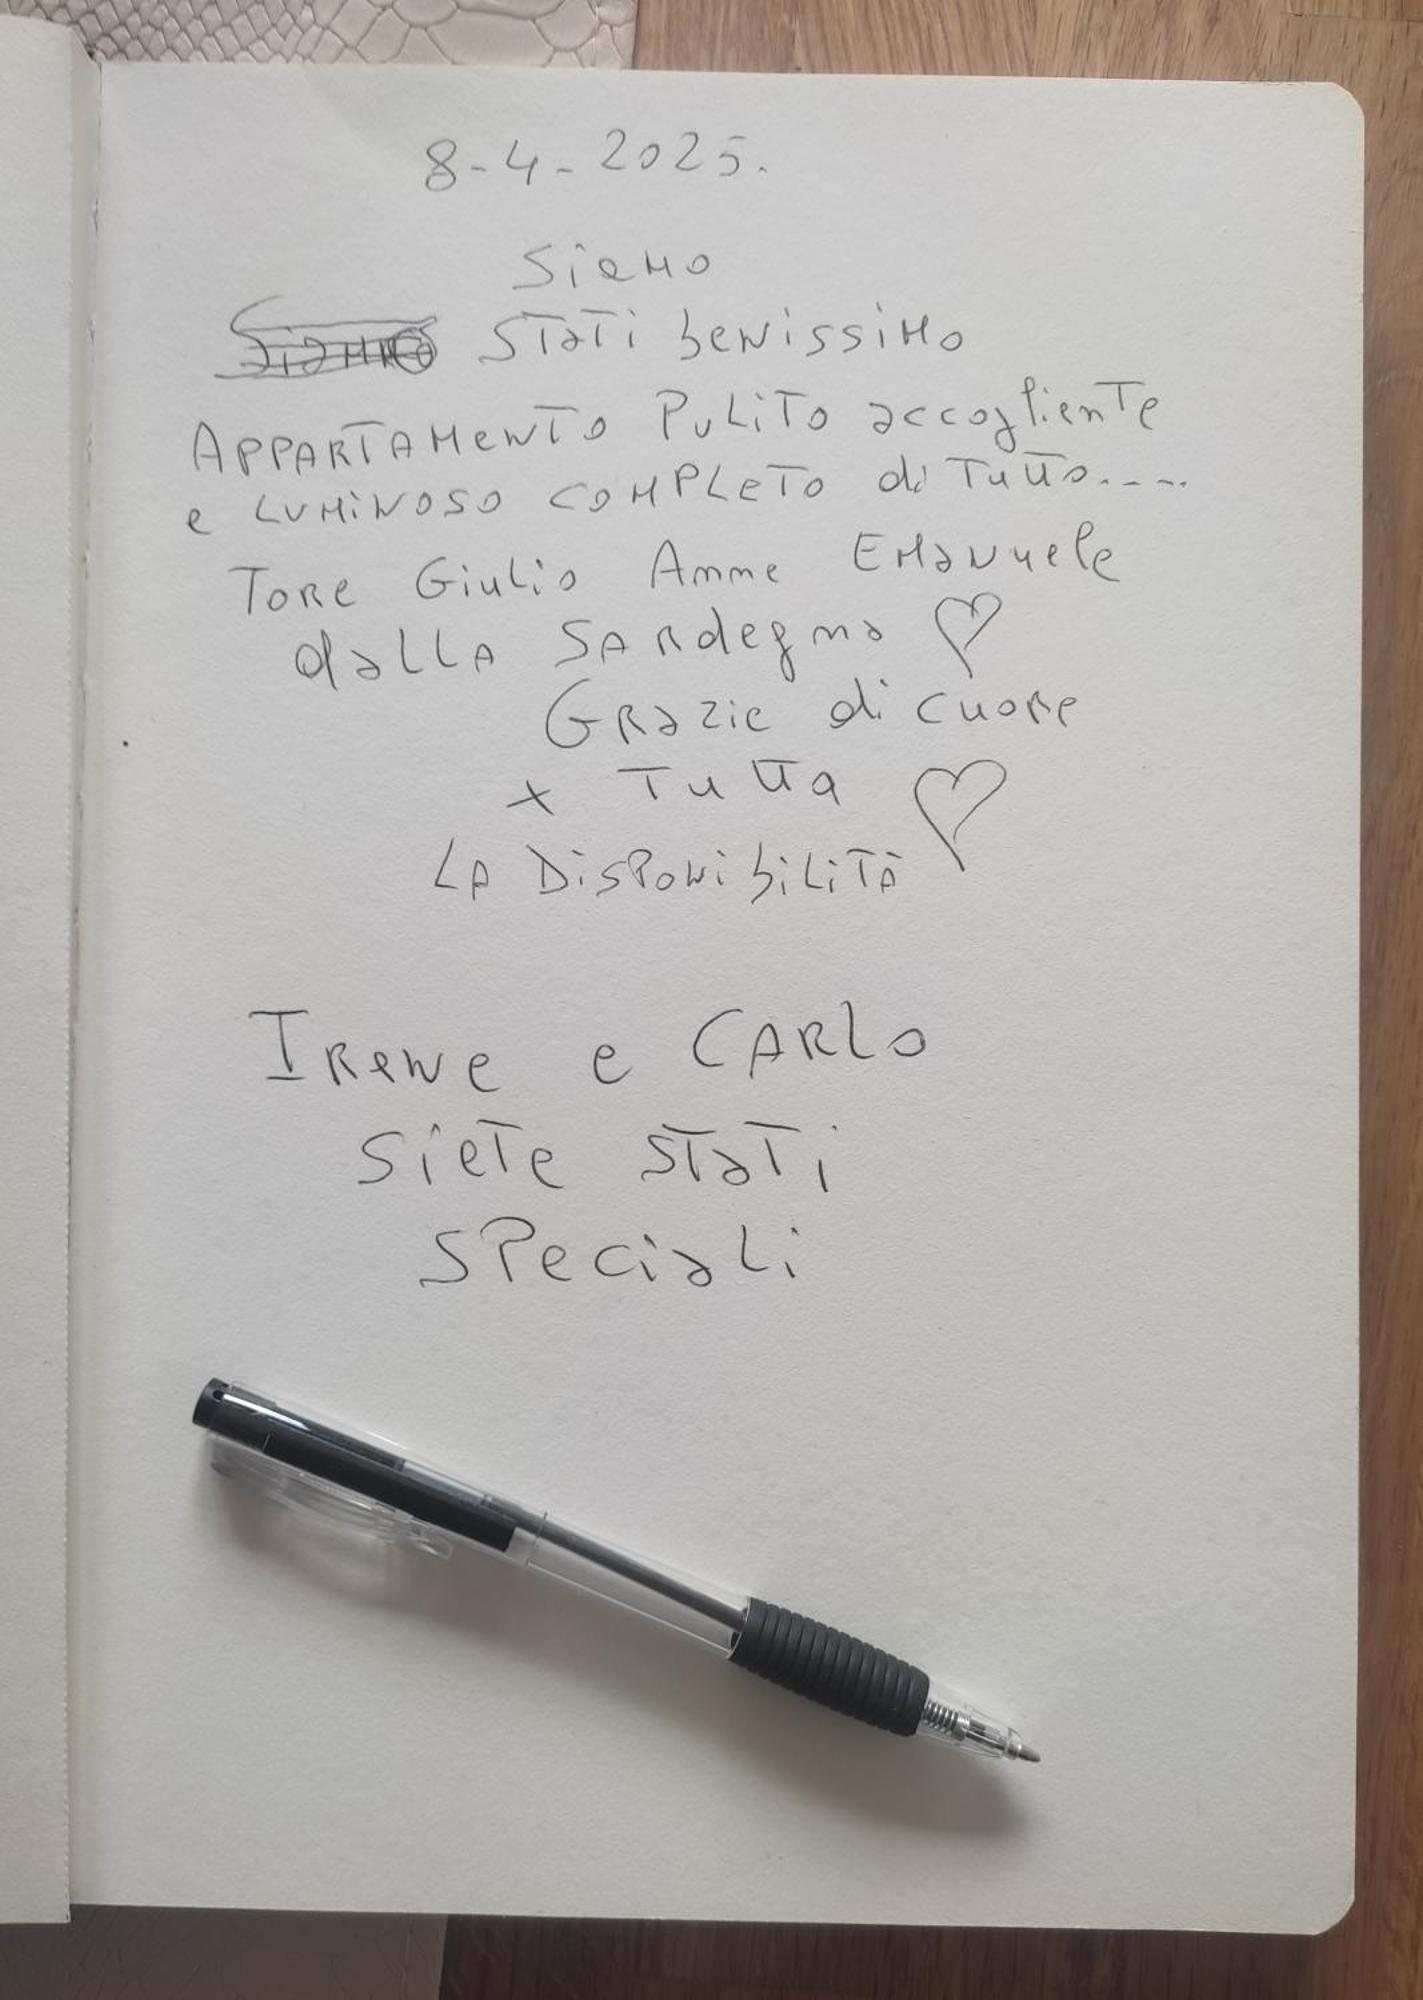 8-4-2025.
Siamo
Siamo stati benissimo
APPARTAMENTO PULITO accogliente
e LUMINOSO COMPLETO di Tutto.....
Tore Giulio Anne Emanuele
dalla Sardegna ♡
Grazie di cuore
x Tutta ♡
LA DisponibiLiTà
Irene e CARLo
siete stati
speciali